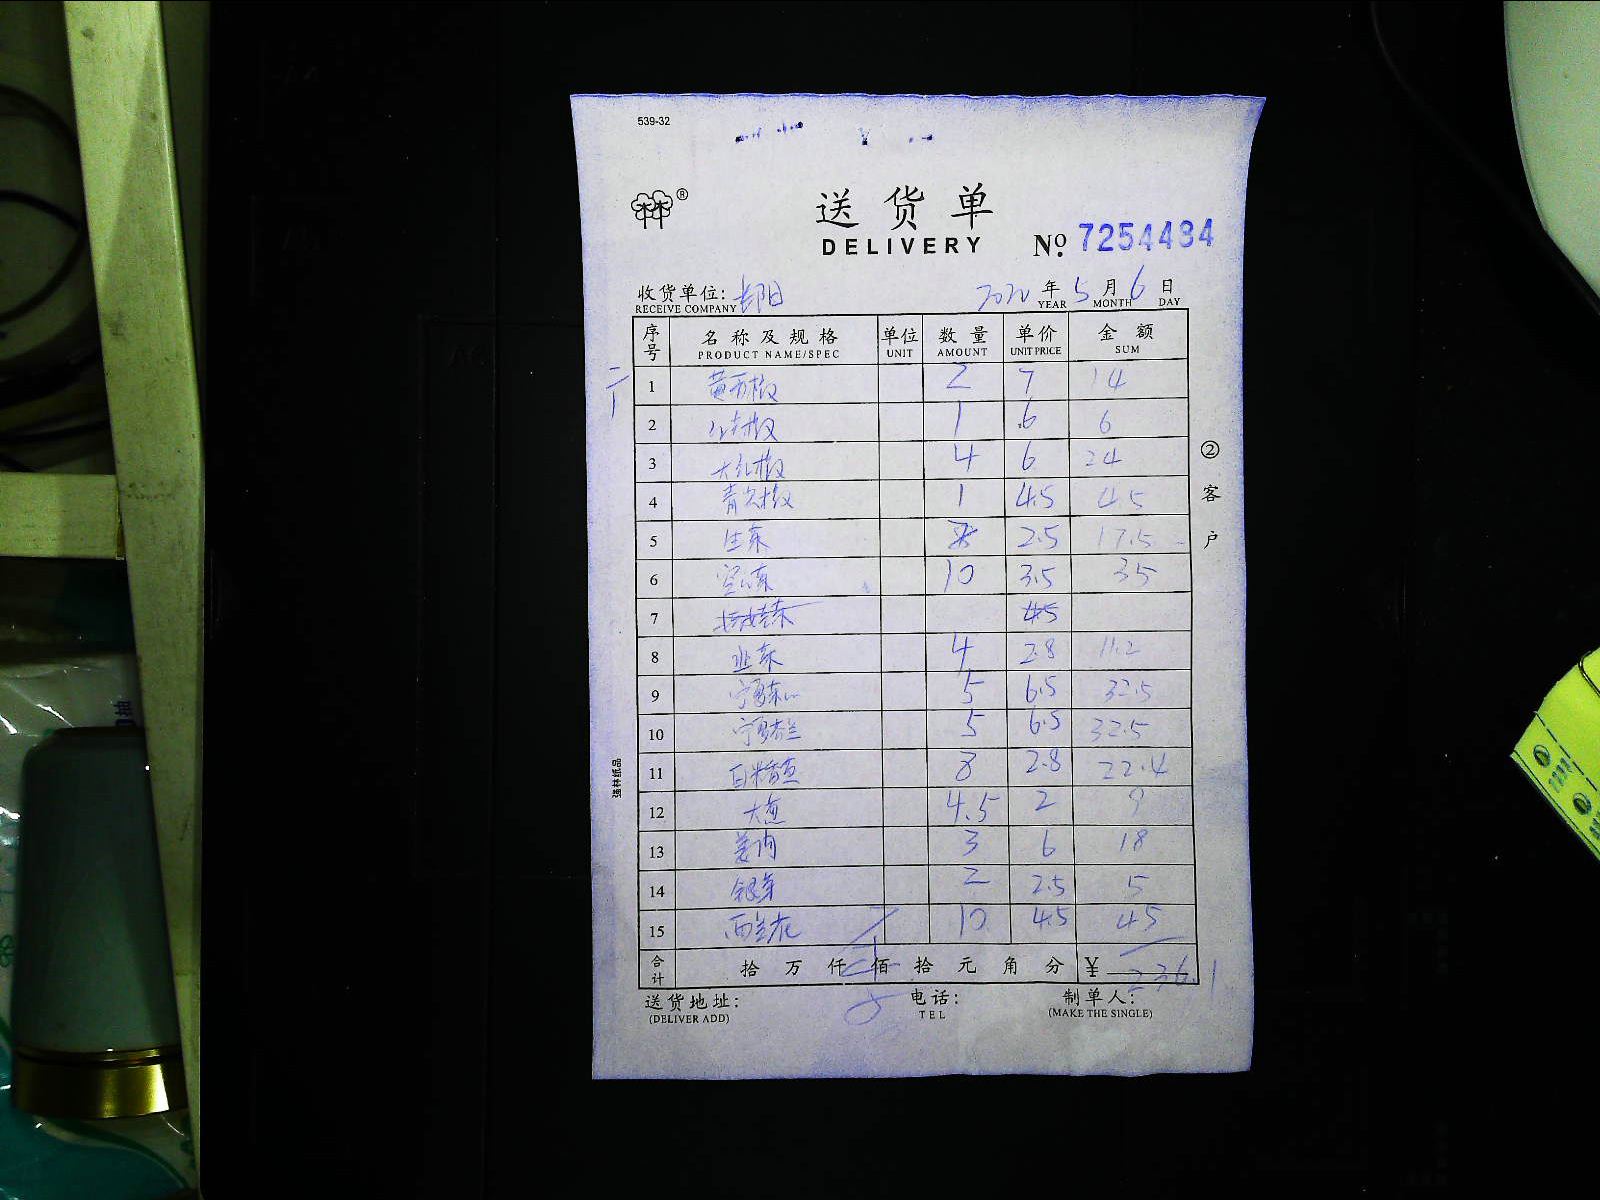 539-32
送货单
DELIVERY
No. 7254484
收货单位: 长阳 2020 年 5 月 6 日
RECEIVE COMPANY YEAR MONTH DAY
序号 名称及规格 单位 数量 单价 金额
PRODUCT NAME/SPEC UNIT AMOUNT UNIT PRICE SUM
1 黄西椒 2 7 14
2 1 6 6
3 大红椒 4 6 24
4 青尖椒 1 4.5 4.5
5 生菜 2.5 17.5
6 空心菜 10 3.5 35
7 4.5
8 韭菜 4 2.8 11.2
9 宁夏菜心 5 6.5 32.5
10 宁夏芥兰 5 6.5 32.5
11 8 2.8 22.4
12 大葱 4.5 2 9
13 姜肉 3 6 18
14 银芽 2 2.5 5
15 西兰花 10 4.5 45
合计 拾 万 仟 佰 拾 元 角 分 ¥ 236.1
送货地址: 电话: 制单人:
(DELIVER ADD) TEL (MAKE THE SINGLE)
②客户
强林纸品